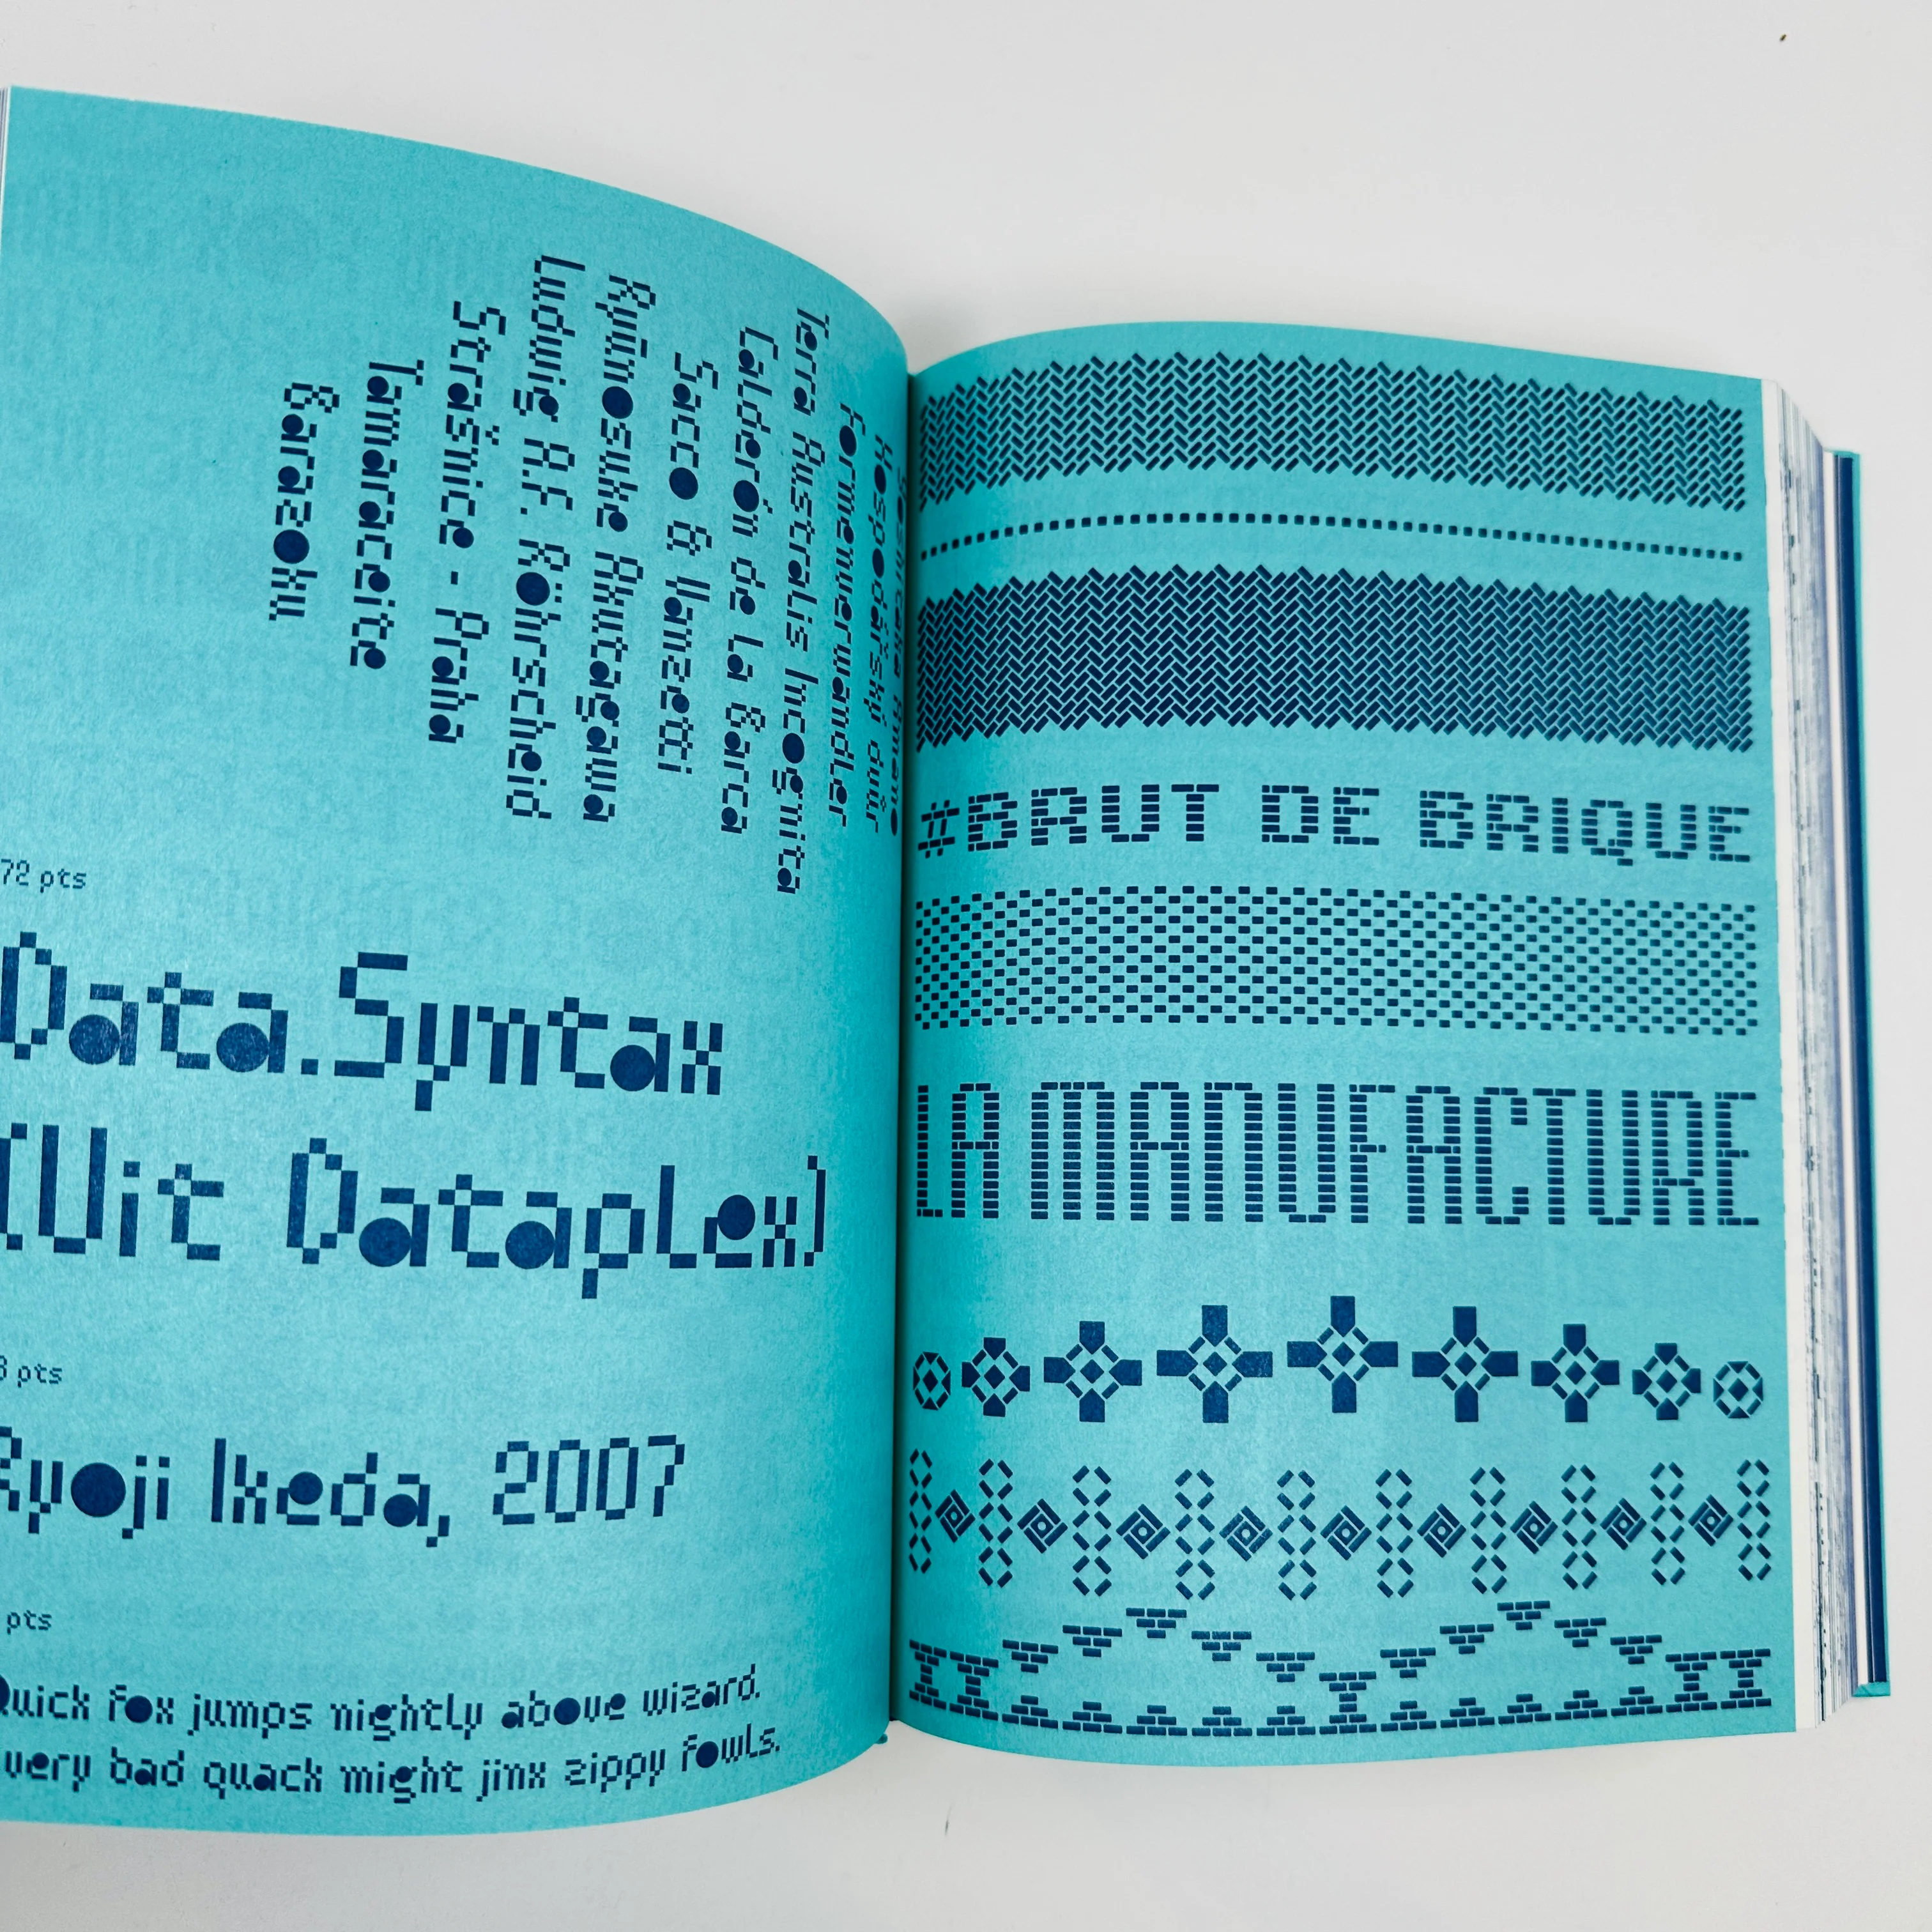 Terra Australis Incognita
Calderón de la Barca
Sacco & Vanzetti
Ryūnosuke Akutagawa
Ludwig R.F. Röhrscheid
Strašnice - Praha
Tamaraceite
Barazoku
Formenverwandler
Hospodářský dvůr
72 pts
Data.Syntax
(Vit Dataplex)
pts
Ryoji Ikeda, 2007
pts
Quick fox jumps nightly above wizard.
very bad quack might jinx zippy fowls.
#BRUT DE BRiQUE
LA MANUFACTURE